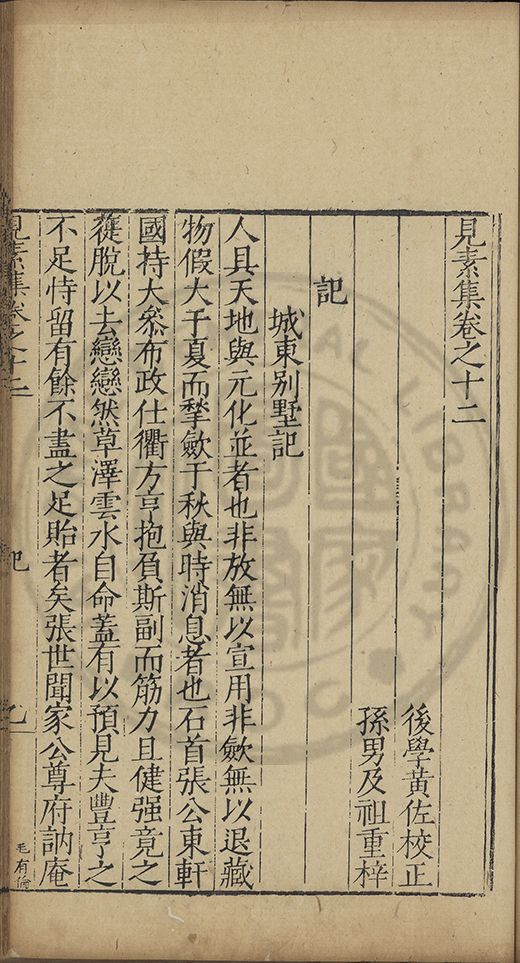 見素集卷之十二
後學黃佐校正
孫男及祖重梓
記
城東別墅記
人具天地與元化並者也非放無以宣用非歛無以退藏
物假大于夏而揫歛于秋與時消息者也石首張公東軒
國持大叅布政仕衢方亨抱負斯副而筋力且健强竟之
蓰脫以去戀戀然草澤雲水自命蓋有以預見夫豐亨之
不足恃留有餘不盡之足貽者矣張世聞家公尊府訥庵
見素集卷之十二
記
乙
毛有倫